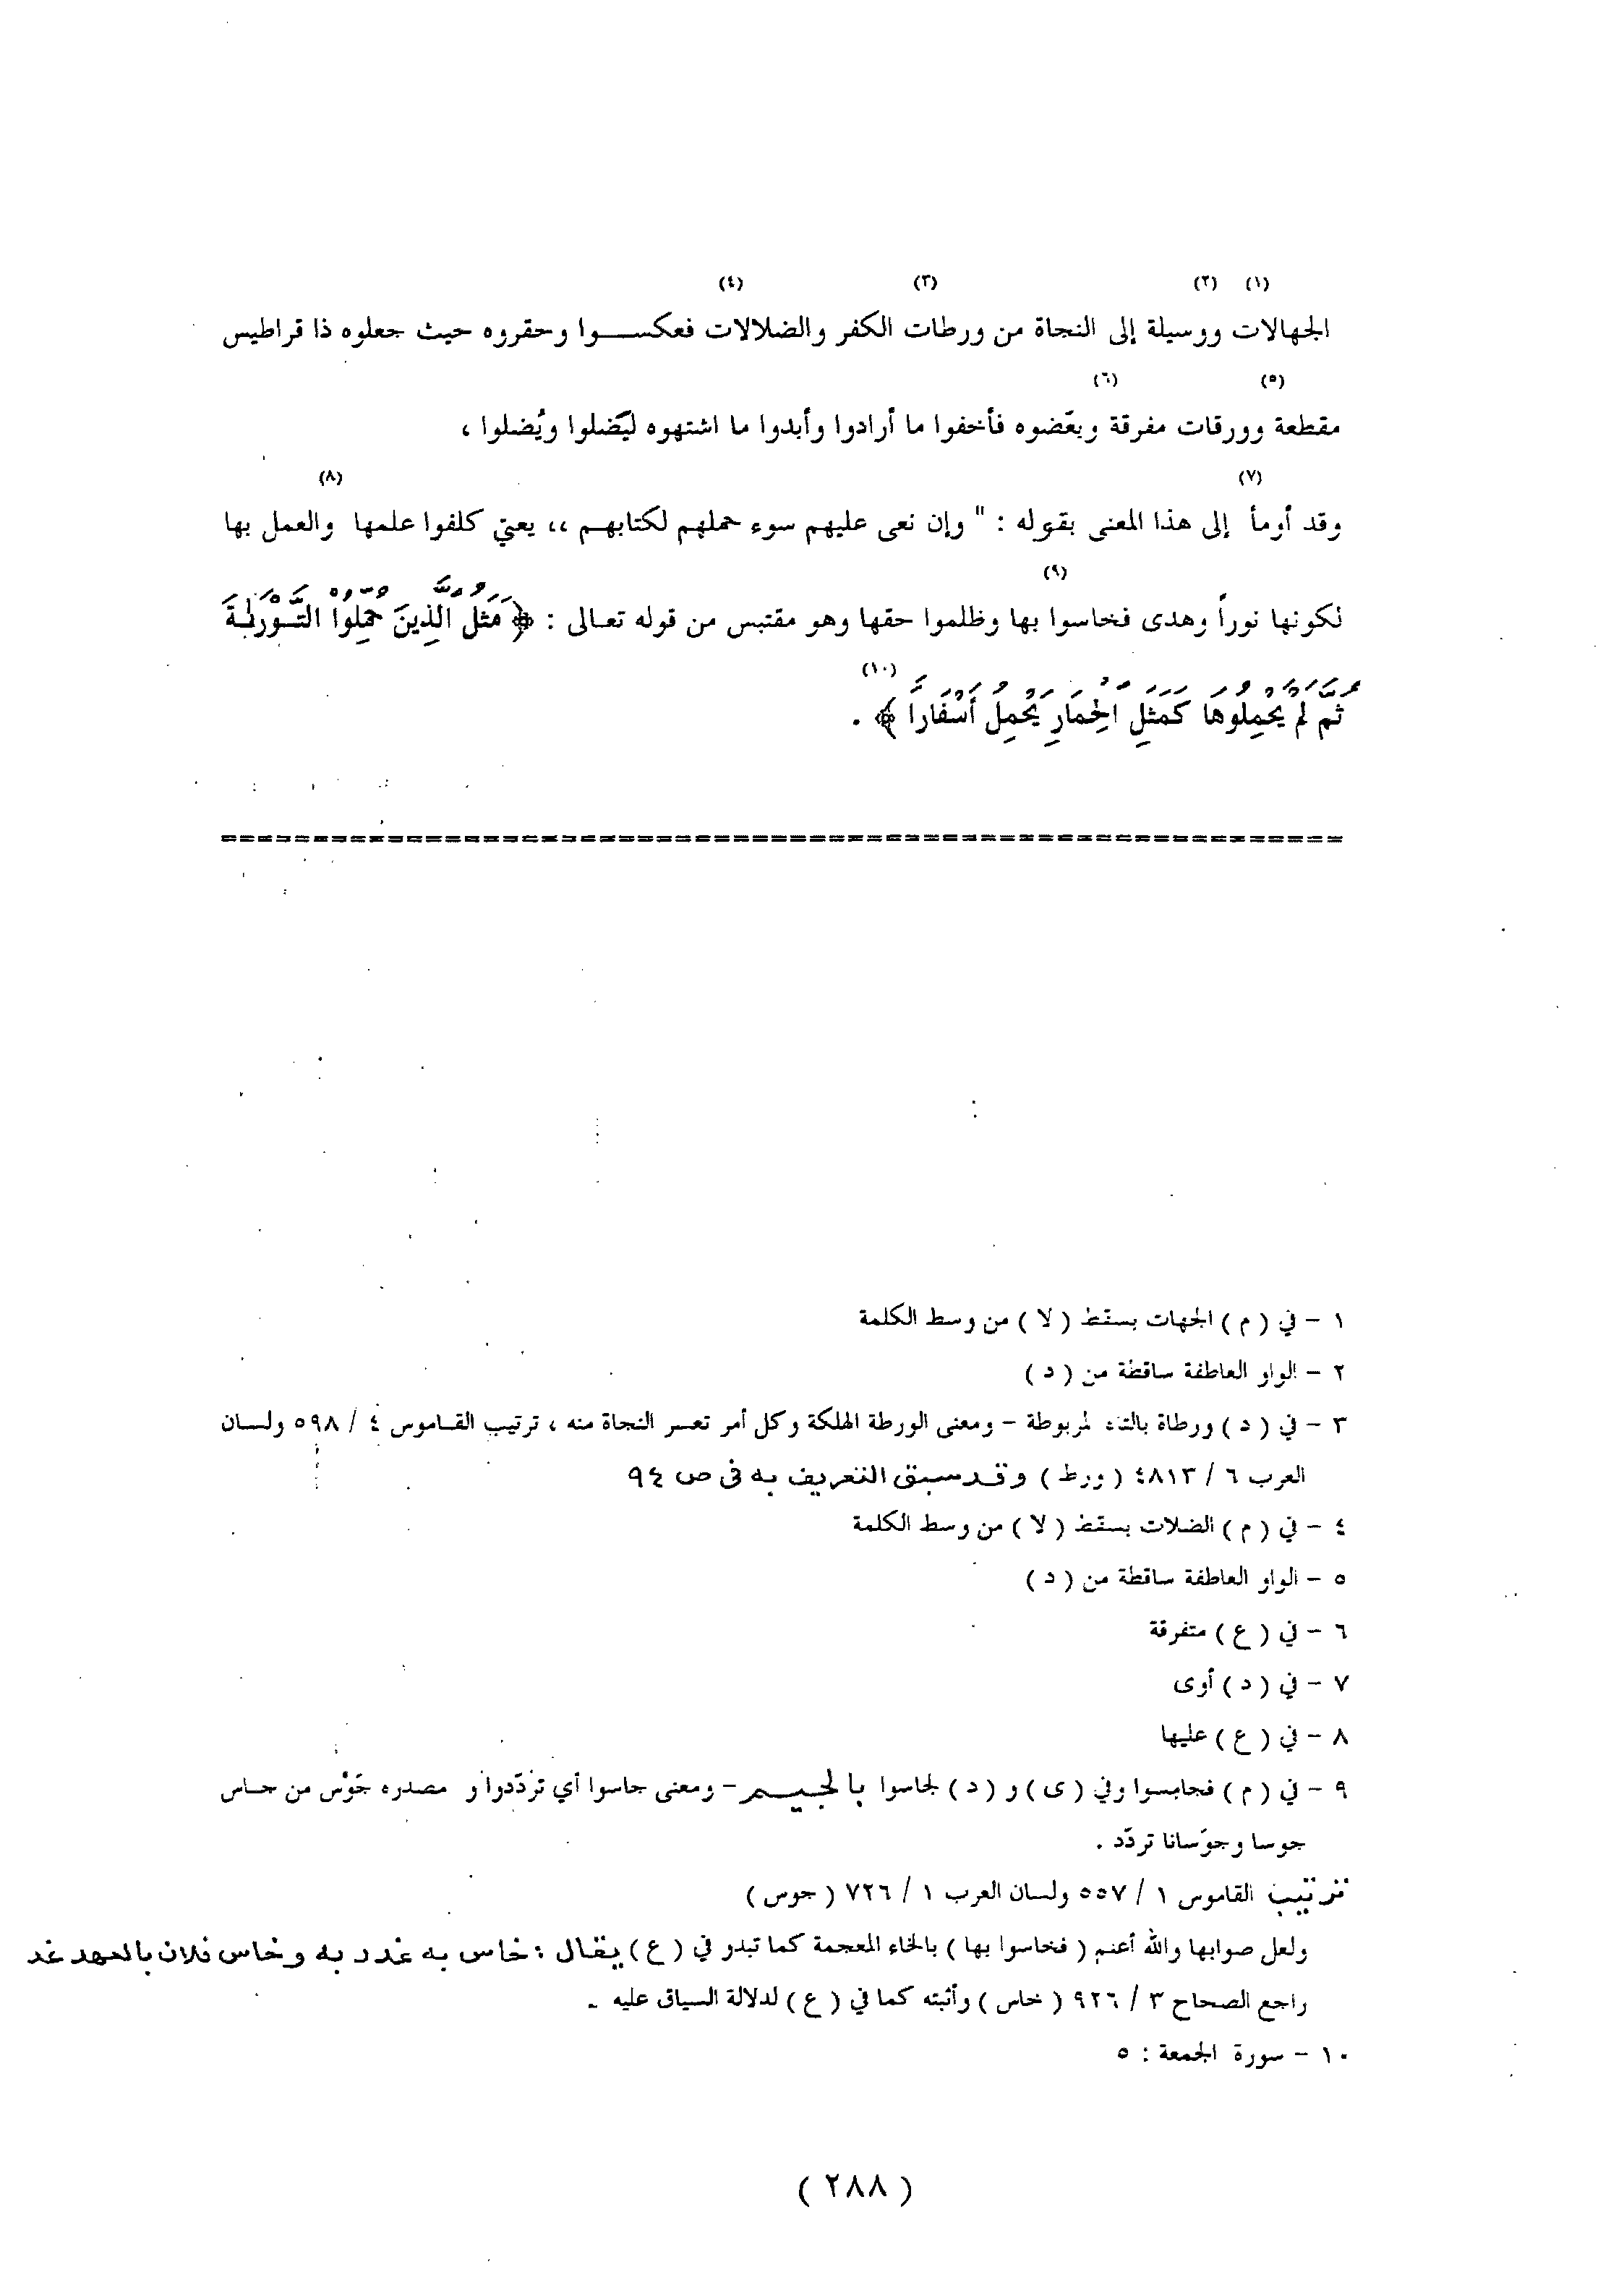 (١) (٢) (٣) (٤)
الجهالات ووسيلة إلى النجاة من ورطات الكفر والضلالات فعكســـوا وحقروه حيث جعلوه ذا قراطيس
(٥) (٦)
مقطعة وورقات مفرقة وبعّضوه فأخفوا ما أرادوا وأبدوا ما اشتهوه ليَضلوا ويُضلوا ،
(٧) (٨)
وقد أومأ إلى هذا المعنى بقوله : " وإن نعى عليهم سوء حملهم لكتابهـم ،، يعني كلفوا علمها والعمل بها
(٩)
لكونها نوراً وهدى فخاسوا بها وظلموا حقها وهو مقتبس من قوله تعـالى : ﴿ مَثَلُ الَّذِينَ حُمِّلُوا۟ التَّـوْرَىٰـةَ
(١٠)
ثُمَّ لَمْ يَحْمِلُوهَا كَمَثَلِ الْحِمَارِ يَحْمِلُ أَسْفَارَا ﴾ .
================================================
١ - في ( م ) الجهات بسقط ( لا ) من وسط الكلمة
٢ - الواو العاطفة ساقطة من ( د )
٣ - في ( د ) ورطاة بالتاء لمربوطة - ومعنى الورطة الهلكة وكل أمر تعسـر النجاة منه ، ترتيب القـاموس ٤ / ٥٩٨ ولسـان
العرب ٦ / ٤٨١٣ ( ورط ) وقد سبق التعريف به في ص ٩٤
٤ - في ( م ) الضلات بسقط ( لا ) من وسط الكلمة
٥ - الواو العاطفة ساقطة من ( د )
٦ - في ( ع ) متفرقة
٧ - في ( د ) أوى
٨ - في ( ع ) عليها
٩ - في ( م ) فجابسوا وفي ( ى ) و ( د ) لجاسوا بالجيـــم - ومعنى جاسوا أي تردّدوا و مصدره جَوْس من جـاس
جوسا وجوَسانا تردّد .
ترتيب القاموس ١ / ٥٥٧ ولسان العرب ١ / ٧٢٦ ( جوس )
ولعل صوابها والله أعلم ( فخاسوا بها ) بالخاء المعجمة كما تبدو في ( ع ) يقال : خاس به غدر به وخاس فلان بالعهد غد
راجع الصحاح ٣ / ٩٢٦ ( خاس ) وأثبته كما في ( ع ) لدلالة السياق عليه -
١٠ - سورة الجمعة : ٥
( ٢٨٨ )